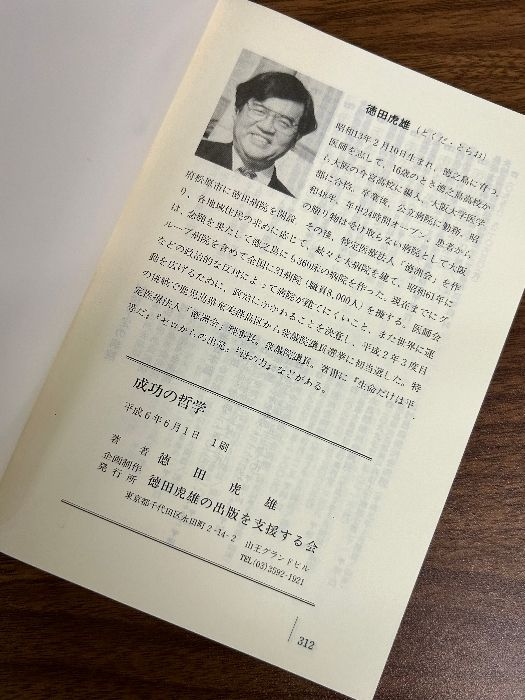 徳田虎雄（とくだ・とらお）
昭和13年2月10日生まれ、徳之島に育つ。
医師を志して、16歳のとき徳之島高校か
ら大阪の今宮高校に編入、大阪大学医学
部に合格。卒業後、公立病院に勤務。昭
和48年、年中24時間オープン、患者から
の贈り物は受け取らない病院として大阪
府松原市に徳田病院を開設。その後、特定医療法人「徳洲会」を作
り、各地域住民の求めに応じて、続々と大病院を建て、昭和61年に
は、念願を果たして徳之島にも360床の病院を作った。現在までにグ
ループ病院を含めて全国に35病院（職員8,000人）を擁する。医師会
などの政治的な圧力によって病院が建てにくいこと、また世界に運
動を広げるために、政界に
を決意し、平成2年3度目
の挑戦で鹿児島県奄美群島区から衆議院議長選挙に初当選した。特
定医療法人「徳洲会」理事長。衆議院議長。著書に『生命だけは平
等だ』『ゼロからの出発
などがある。
成功の哲学
平成6年6月1日 1刷
著者 徳田虎雄
企画制作
発行所 徳田虎雄の出版を支援する会
東京都千代田区永田町2-14-2 山王グランドビル
TEL(03)3592-1921
312